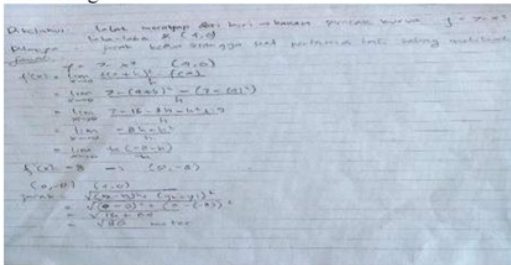 Diketahui : lalat merayap dari kiri → kanan puncak kurva y = 7 - x²
laba-laba di (4,0)
Ditanya : jarak kedua sehingga saat pertama kali saling melihat
Jawab :
y = 7 - x² (4,0)
f'(x) = lim f(x+h) - f(x)
= lim 7-(4+h)² - (7-(4)²)
h
= lim 7-16-8h-h²+9
h
= lim -8h-h²
h
= lim h(-8-h)
h
f'(x) = -8 → (0,-8)
(0,-8) (4,0)
jarak =
= √16+64
= √80 meter